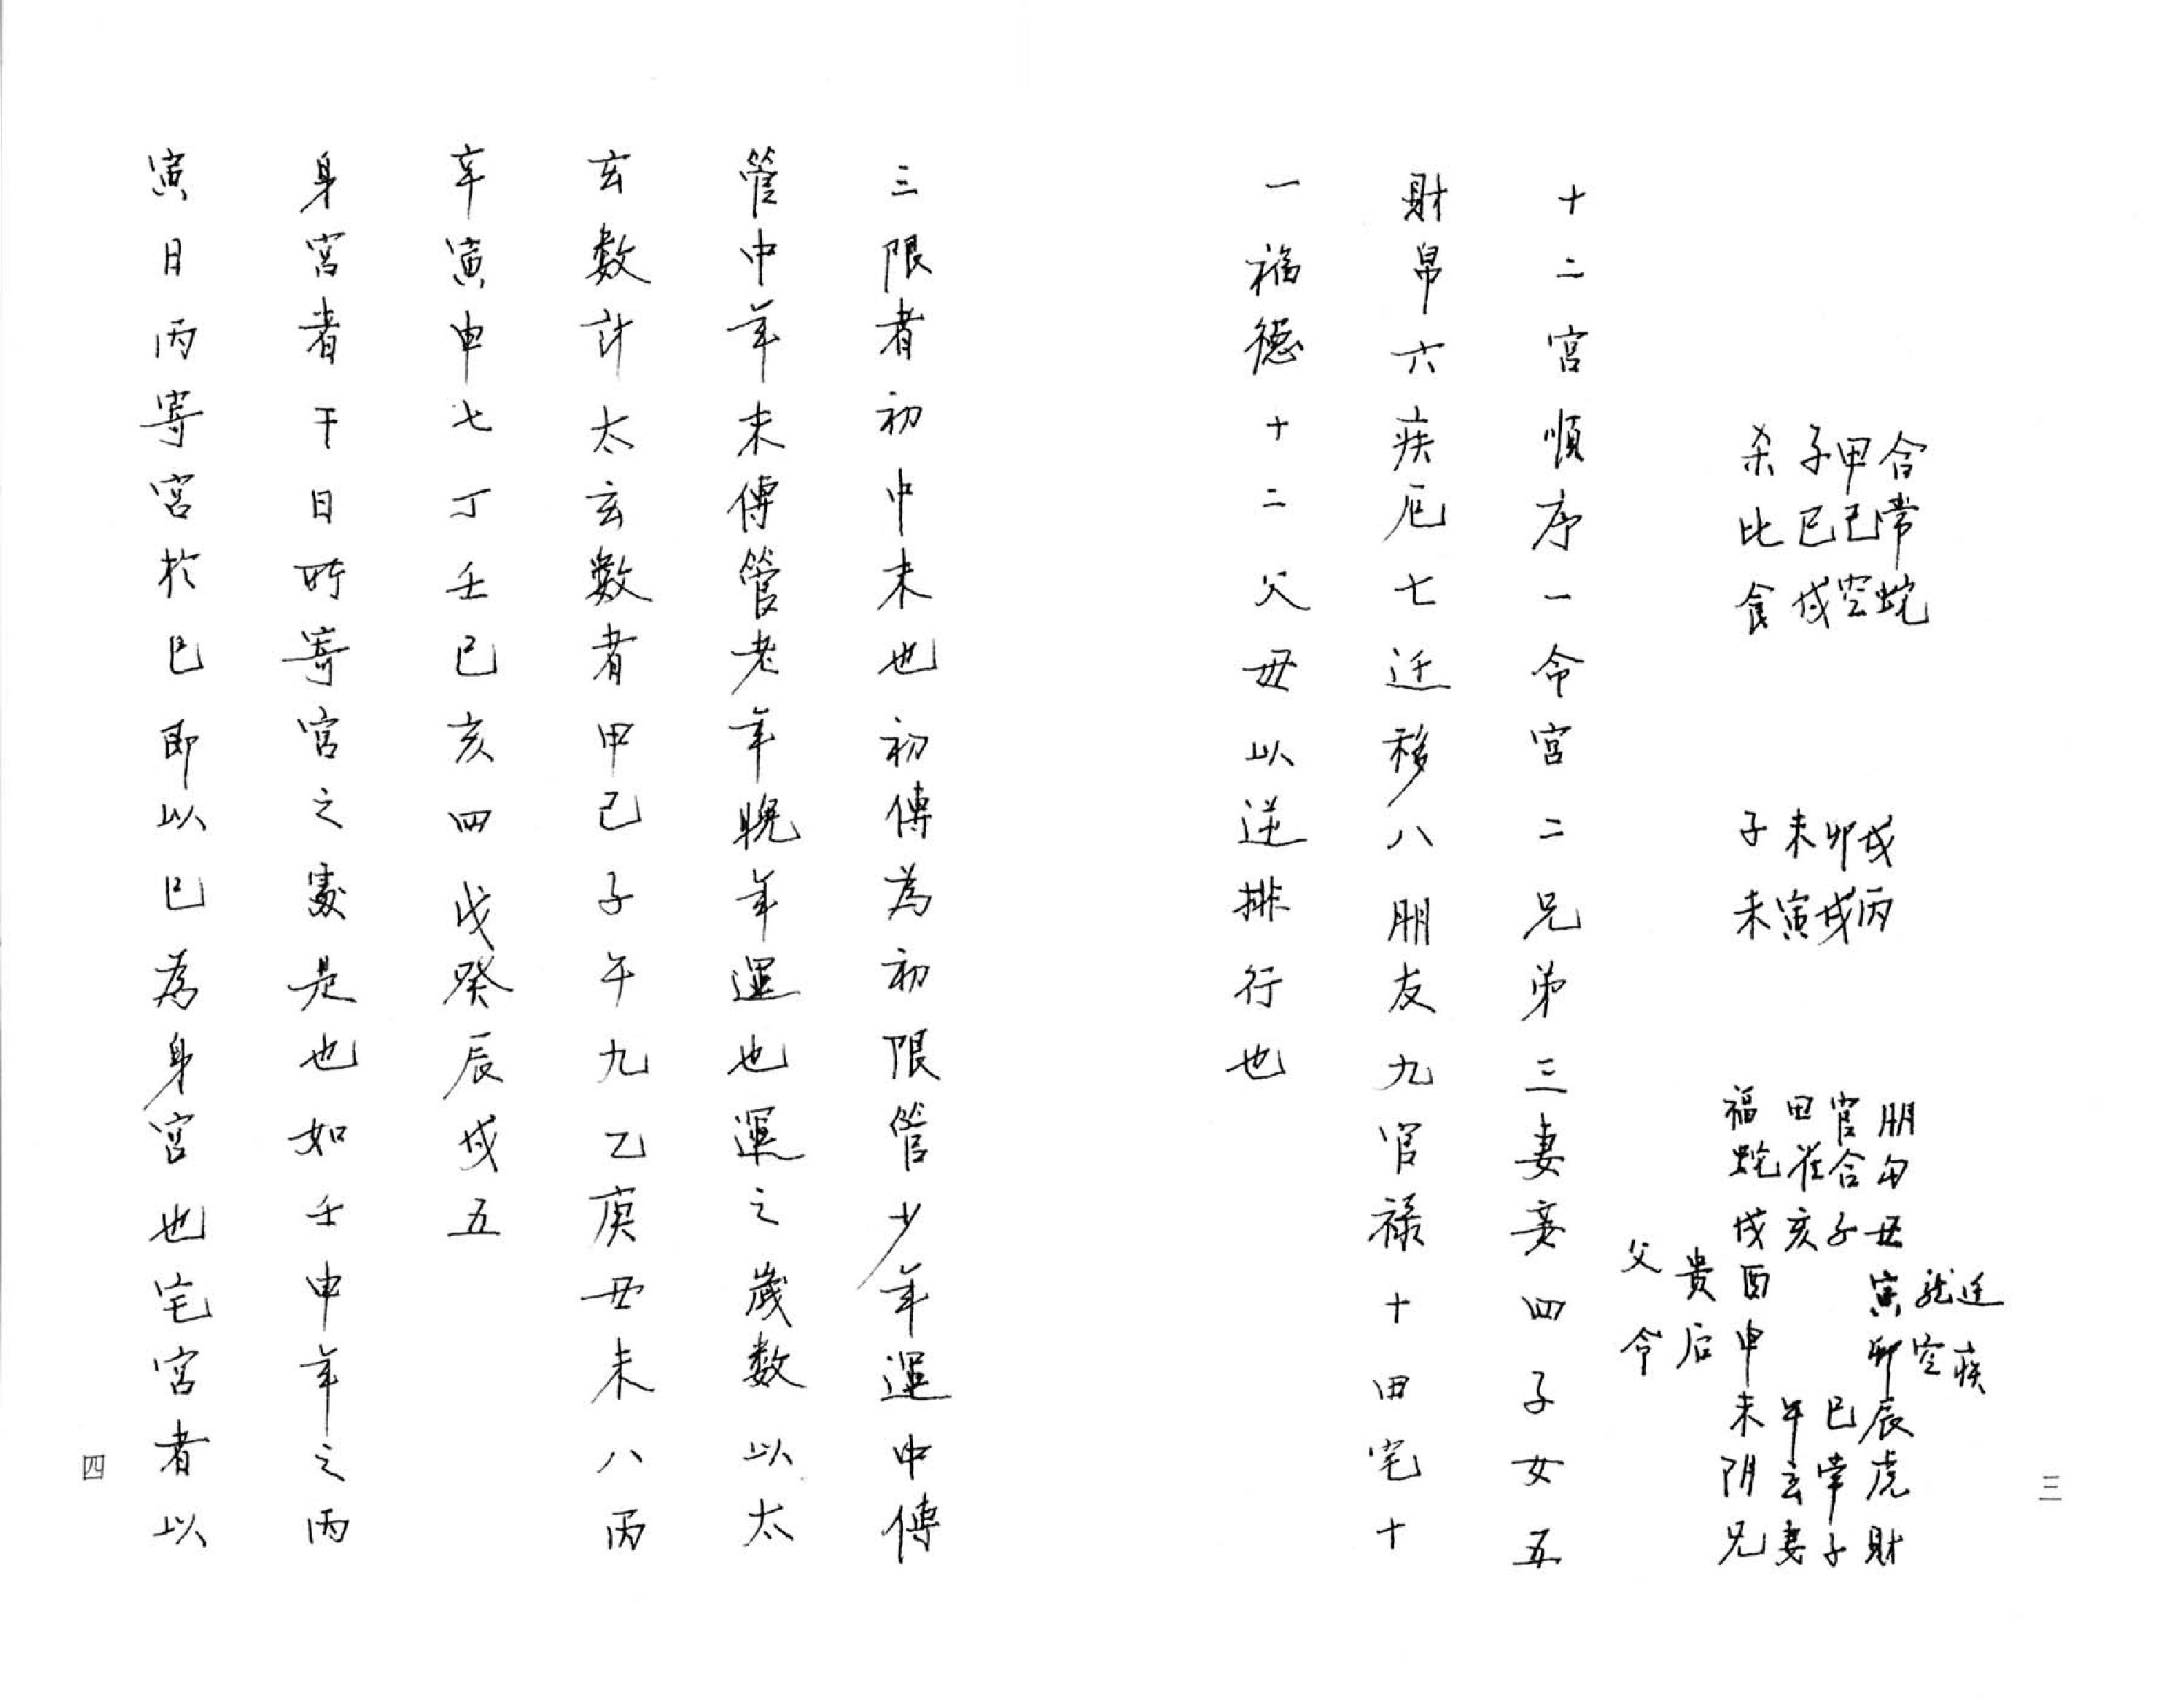 三
迁疾
龙空
寅卯
朋勾丑
辰虎財
官合子
巳常子
田雀亥
午玄妻
福蛇戌酉申未阴兄
贵后
父命
戌丙
卯戌
未寅
子未
合常蛇
甲己空
子巳戌
杀比食
十二宮順序一命宮二兄弟三妻妾四子女五
財帛六疾厄七迁移八朋友九官禄十田宅十
一福德十二父母以逆排行也
三限者初中末也初傳為初限管少年運中傳
管中年末傳管老年晚年運也運之歲数以太
玄数計太玄數者甲己子午九乙庚丑未八丙
辛寅申七丁壬巳亥四戊癸辰戌五
身宮者干日所寄宮之處是也如壬申年之丙
寅日丙寄宮於巳即以巳為身宮也宅宮者以
四